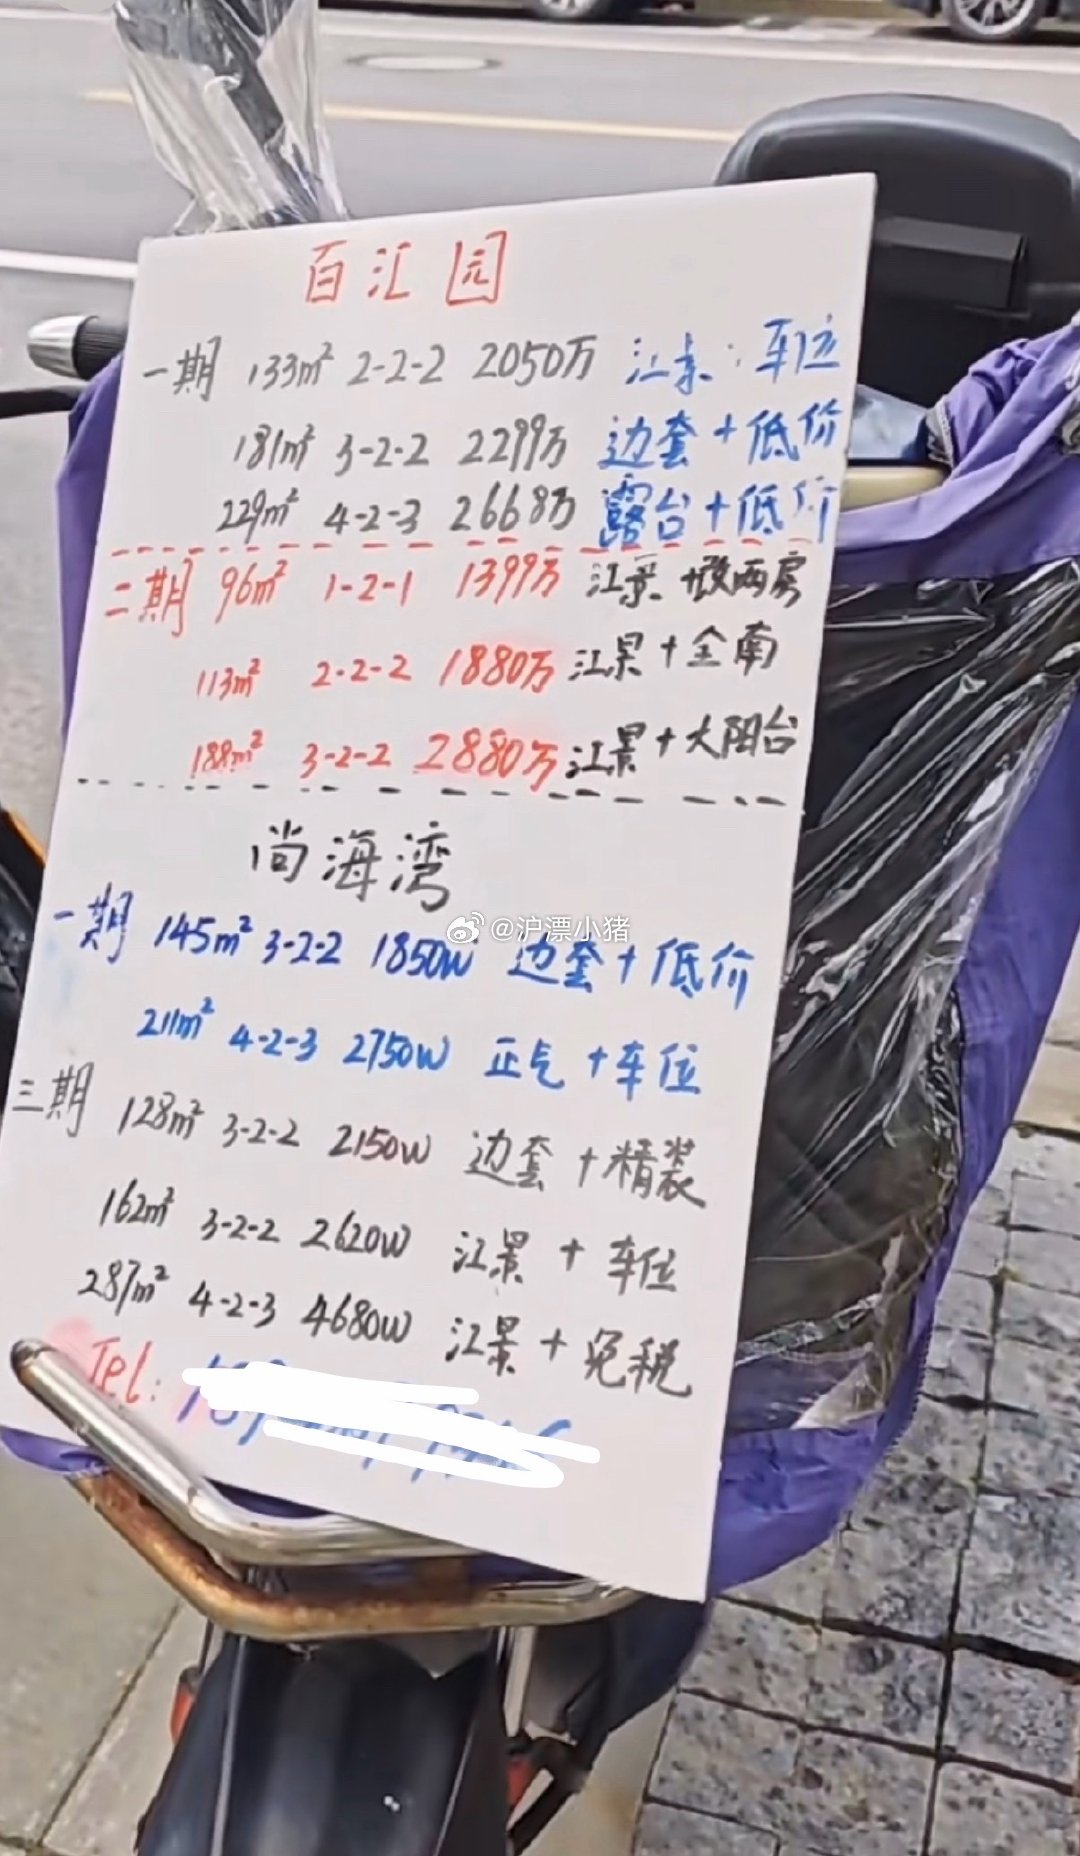 百汇园
一期 133m² 2-2-2 2050万 江景:车位
181m² 3-2-2 2299万 边套+低价
229m² 4-2-3 2668万 露台+低价
二期 96m² 1-2-1 1399万 江景+改两房
113m² 2-2-2 1880万 江景+全南
188m² 3-2-2 2880万 江景+大阳台
尚海湾
@沪漂小猪
一期 145m² 3-2-2 1850W 边套+低价
211m² 4-2-3 2750W 正气+车位
三期 128m² 3-2-2 2150W 边套+精装
162m² 3-2-2 2620W 江景+车位
287m² 4-2-3 4680W 江景+免税
Tel: